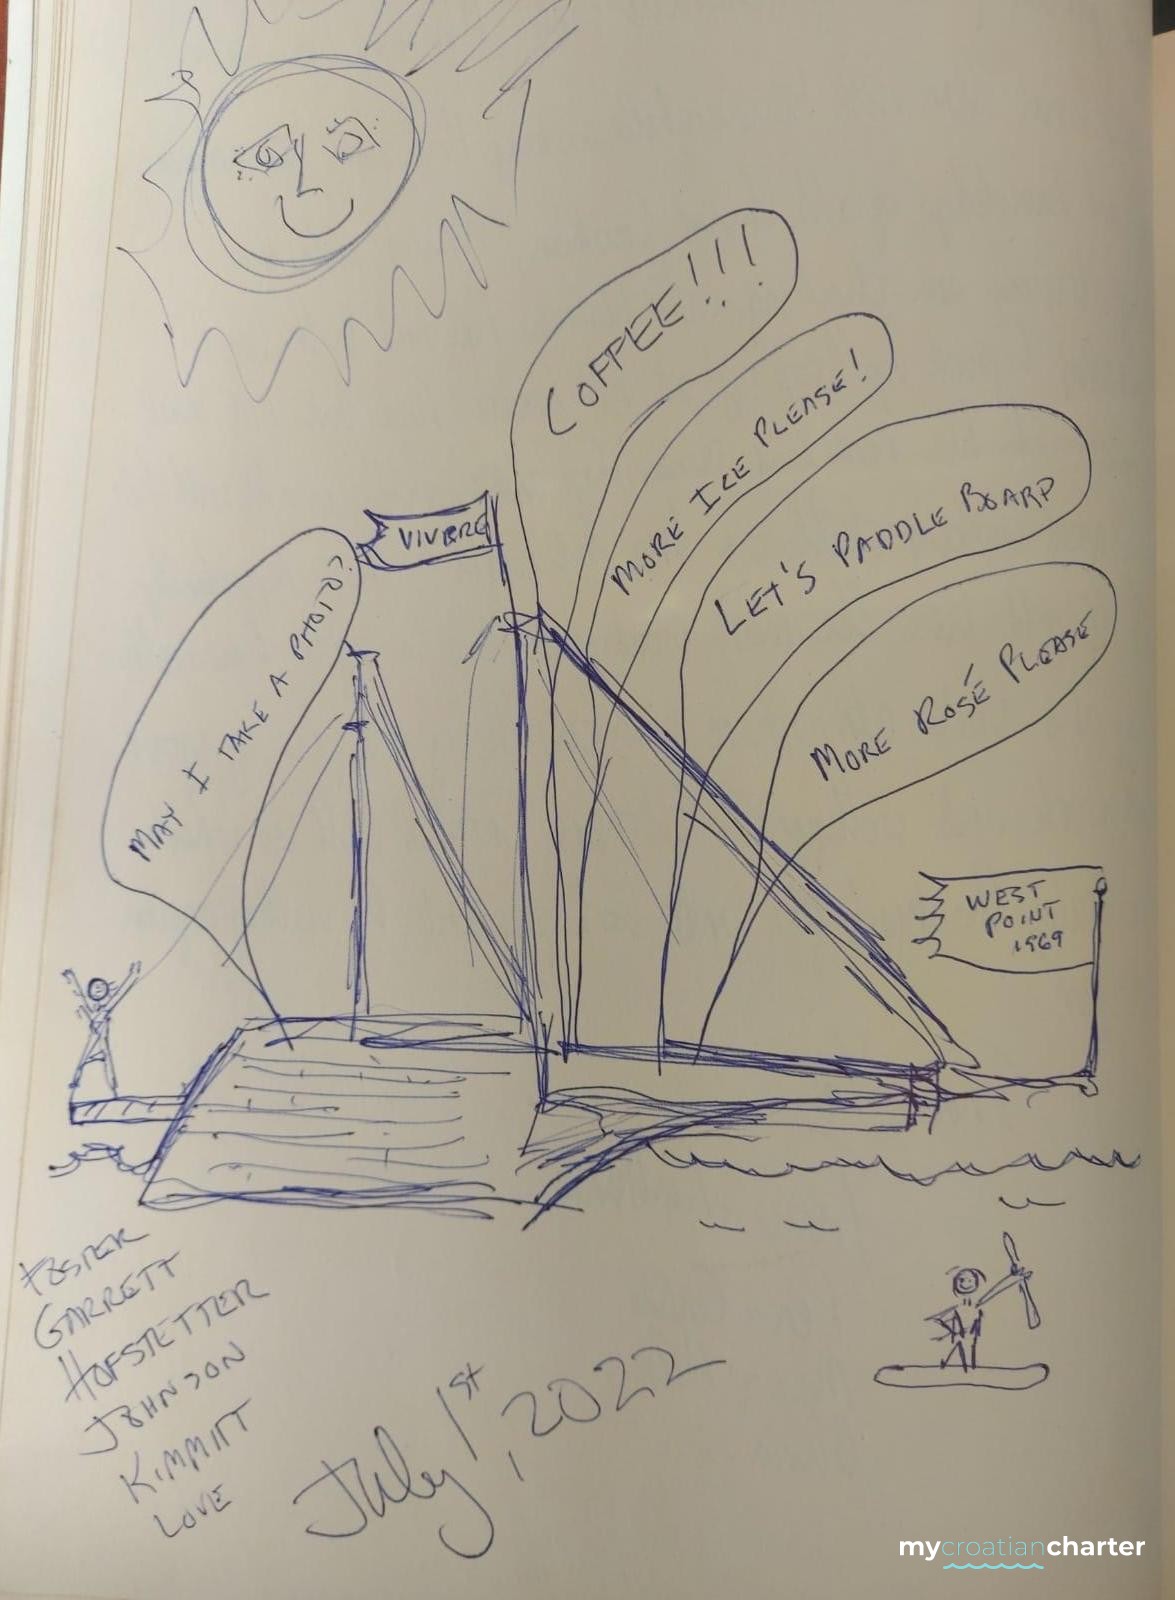 COFFEE!!!
MORE ICE PLEASE!
LET'S PADDLE BOARD
MORE ROSÉ PLEASE
VIVERE
MAY I TAKE A PHOTO?
WEST
POINT
1969
FOSTER
GARRETT
HOFSTETTER
JOHNSON
KIMMITT
LOVE
July 1st, 2022
mycroatiancharter